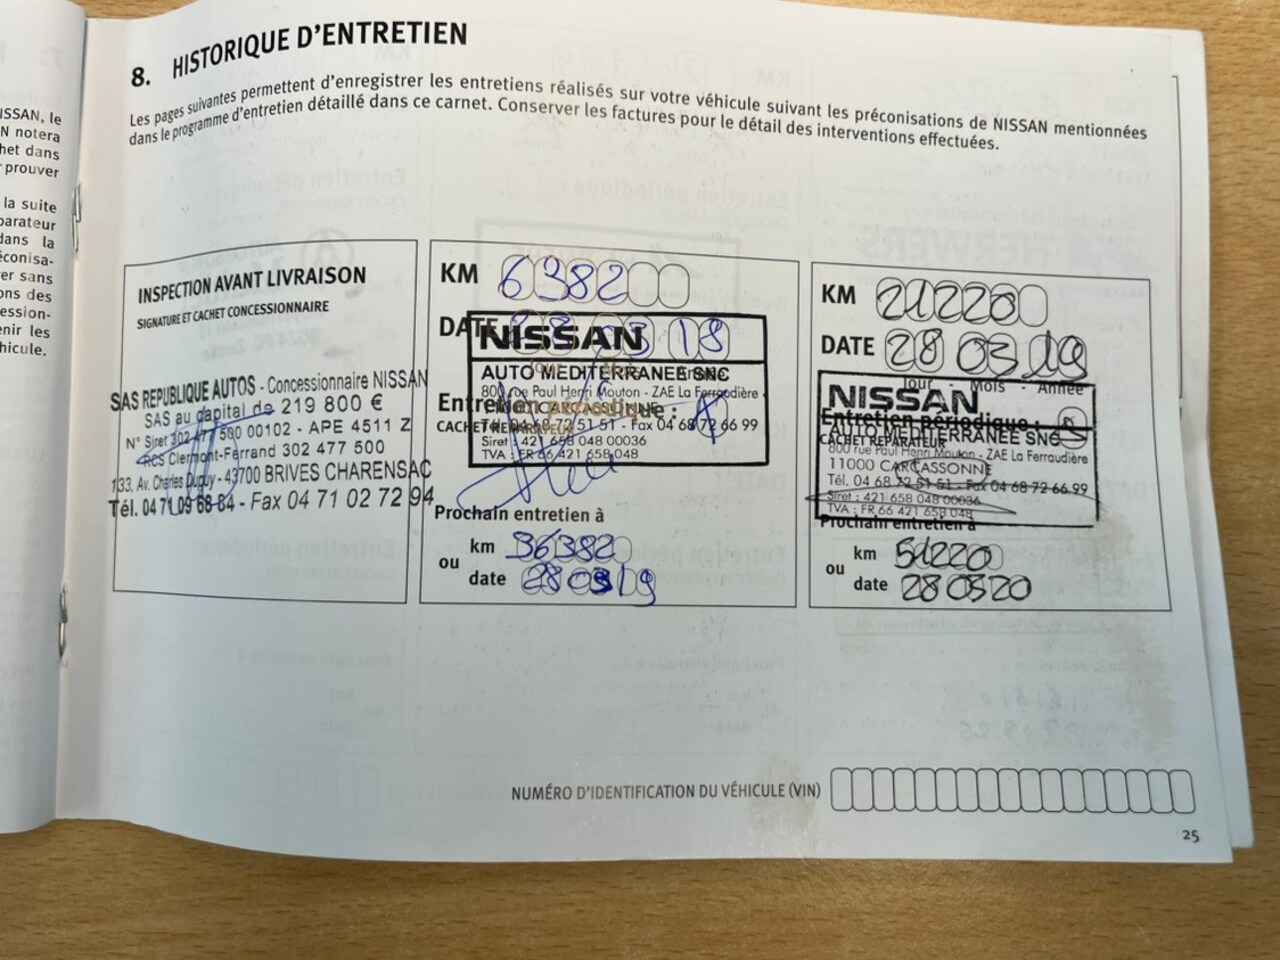 8. HISTORIQUE D'ENTRETIEN
Les pages suivantes permettent d'enregistrer les entretiens réalisés sur votre véhicule suivant les préconisations de NISSAN mentionnées
dans le programme d'entretien détaillé dans ce carnet. Conserver les factures pour le détail des interventions effectuées.
ISSAN, le
N notera
het dans
prouver
la suite
parateur
dans la
éconisa-
er sans
ons des
ession-
enir les
hicule.
INSPECTION AVANT LIVRAISON
SIGNATURE ET CACHET CONCESSIONNAIRE
SAS REPUBLIQUE AUTOS - Concessionnaire NISSAN
SAS au capital de 219 800 €
N° Siret 302 477 500 00102 - APE 4511 Z
RCS Clermont-Ferrand 302 477 500
133, Av. Charles Dupuy - 43700 BRIVES CHARENSAC
Tél. 04 71 09 68 84 - Fax 04 71 02 72 94
KM 6382
DATE 03 18
NISSAN
AUTO MEDITERRANEE SNC
800 rue Paul Henri Mouton - ZAE La Ferraudière
11000 CARCASSONNE
Tél. 04 68 72 51 51 - Fax 04 68 72 66 99
Siret : 421 658 048 00036
TVA : FR 66 421 658 048
Entretien périodique :
CACHET REPARATEUR
Prochain entretien à
km 36382
ou
date 28 03 19
KM 21220
DATE 28 03 19
Jour - Mois - Année
NISSAN
Entretien périodique :
AUTO MEDITERRANEE SNC
CACHET REPARATEUR
800 rue Paul Henri Mouton - ZAE La Ferraudière
11000 CARCASSONNE
Tél. 04 68 72 51 51 - Fax 04 68 72 66 99
Siret : 421 658 048 00036
TVA : FR 66 421 658 048
Prochain entretien à
km 51220
ou
date 28 03 20
NUMÉRO D'IDENTIFICATION DU VÉHICULE (VIN)
25